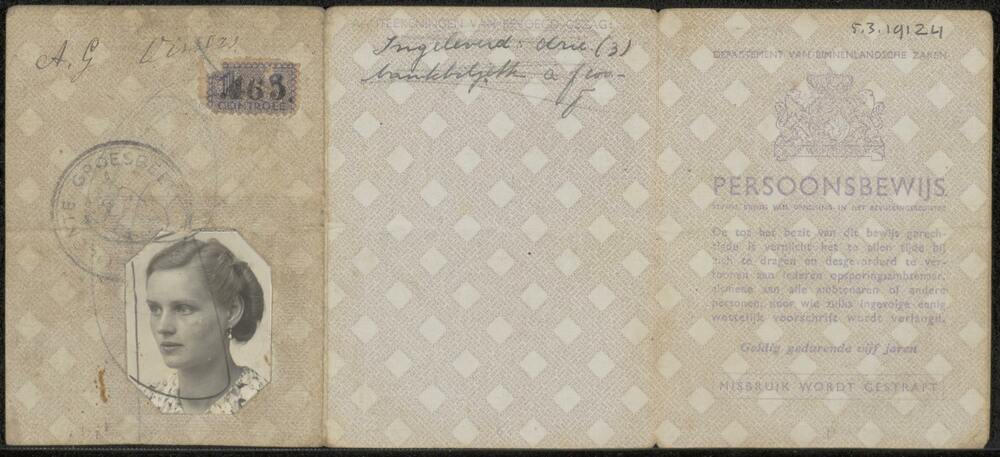 A.G Vissers
1463.
CONTROLE
GROESBEEK
AANTEEKENINGEN VAN BEVOEGD GEZAG:
Ingeleverd: drie (3)
bankbiljetten à f 100-
5.3.19124
DEPARTEMENT VAN BINNENLANDSCHE ZAKEN
PERSOONSBEWIJS
TEVENS BEWIJS VAN OPNEMING IN HET BEVOLKINGSREGISTER
De tot het bezit van dit bewijs gerech-
tigde is verplicht het te allen tijde bij
zich te dragen en desgevorderd te ver-
toonen aan iederen opsporingsambtenaar,
alsmede aan alle ambtenaren of andere
personen, door wie zulks ingevolge eenig
wettelijk voorschrift wordt verlangd.
Geldig gedurende vijf jaren
MISBRUIK WORDT GESTRAFT